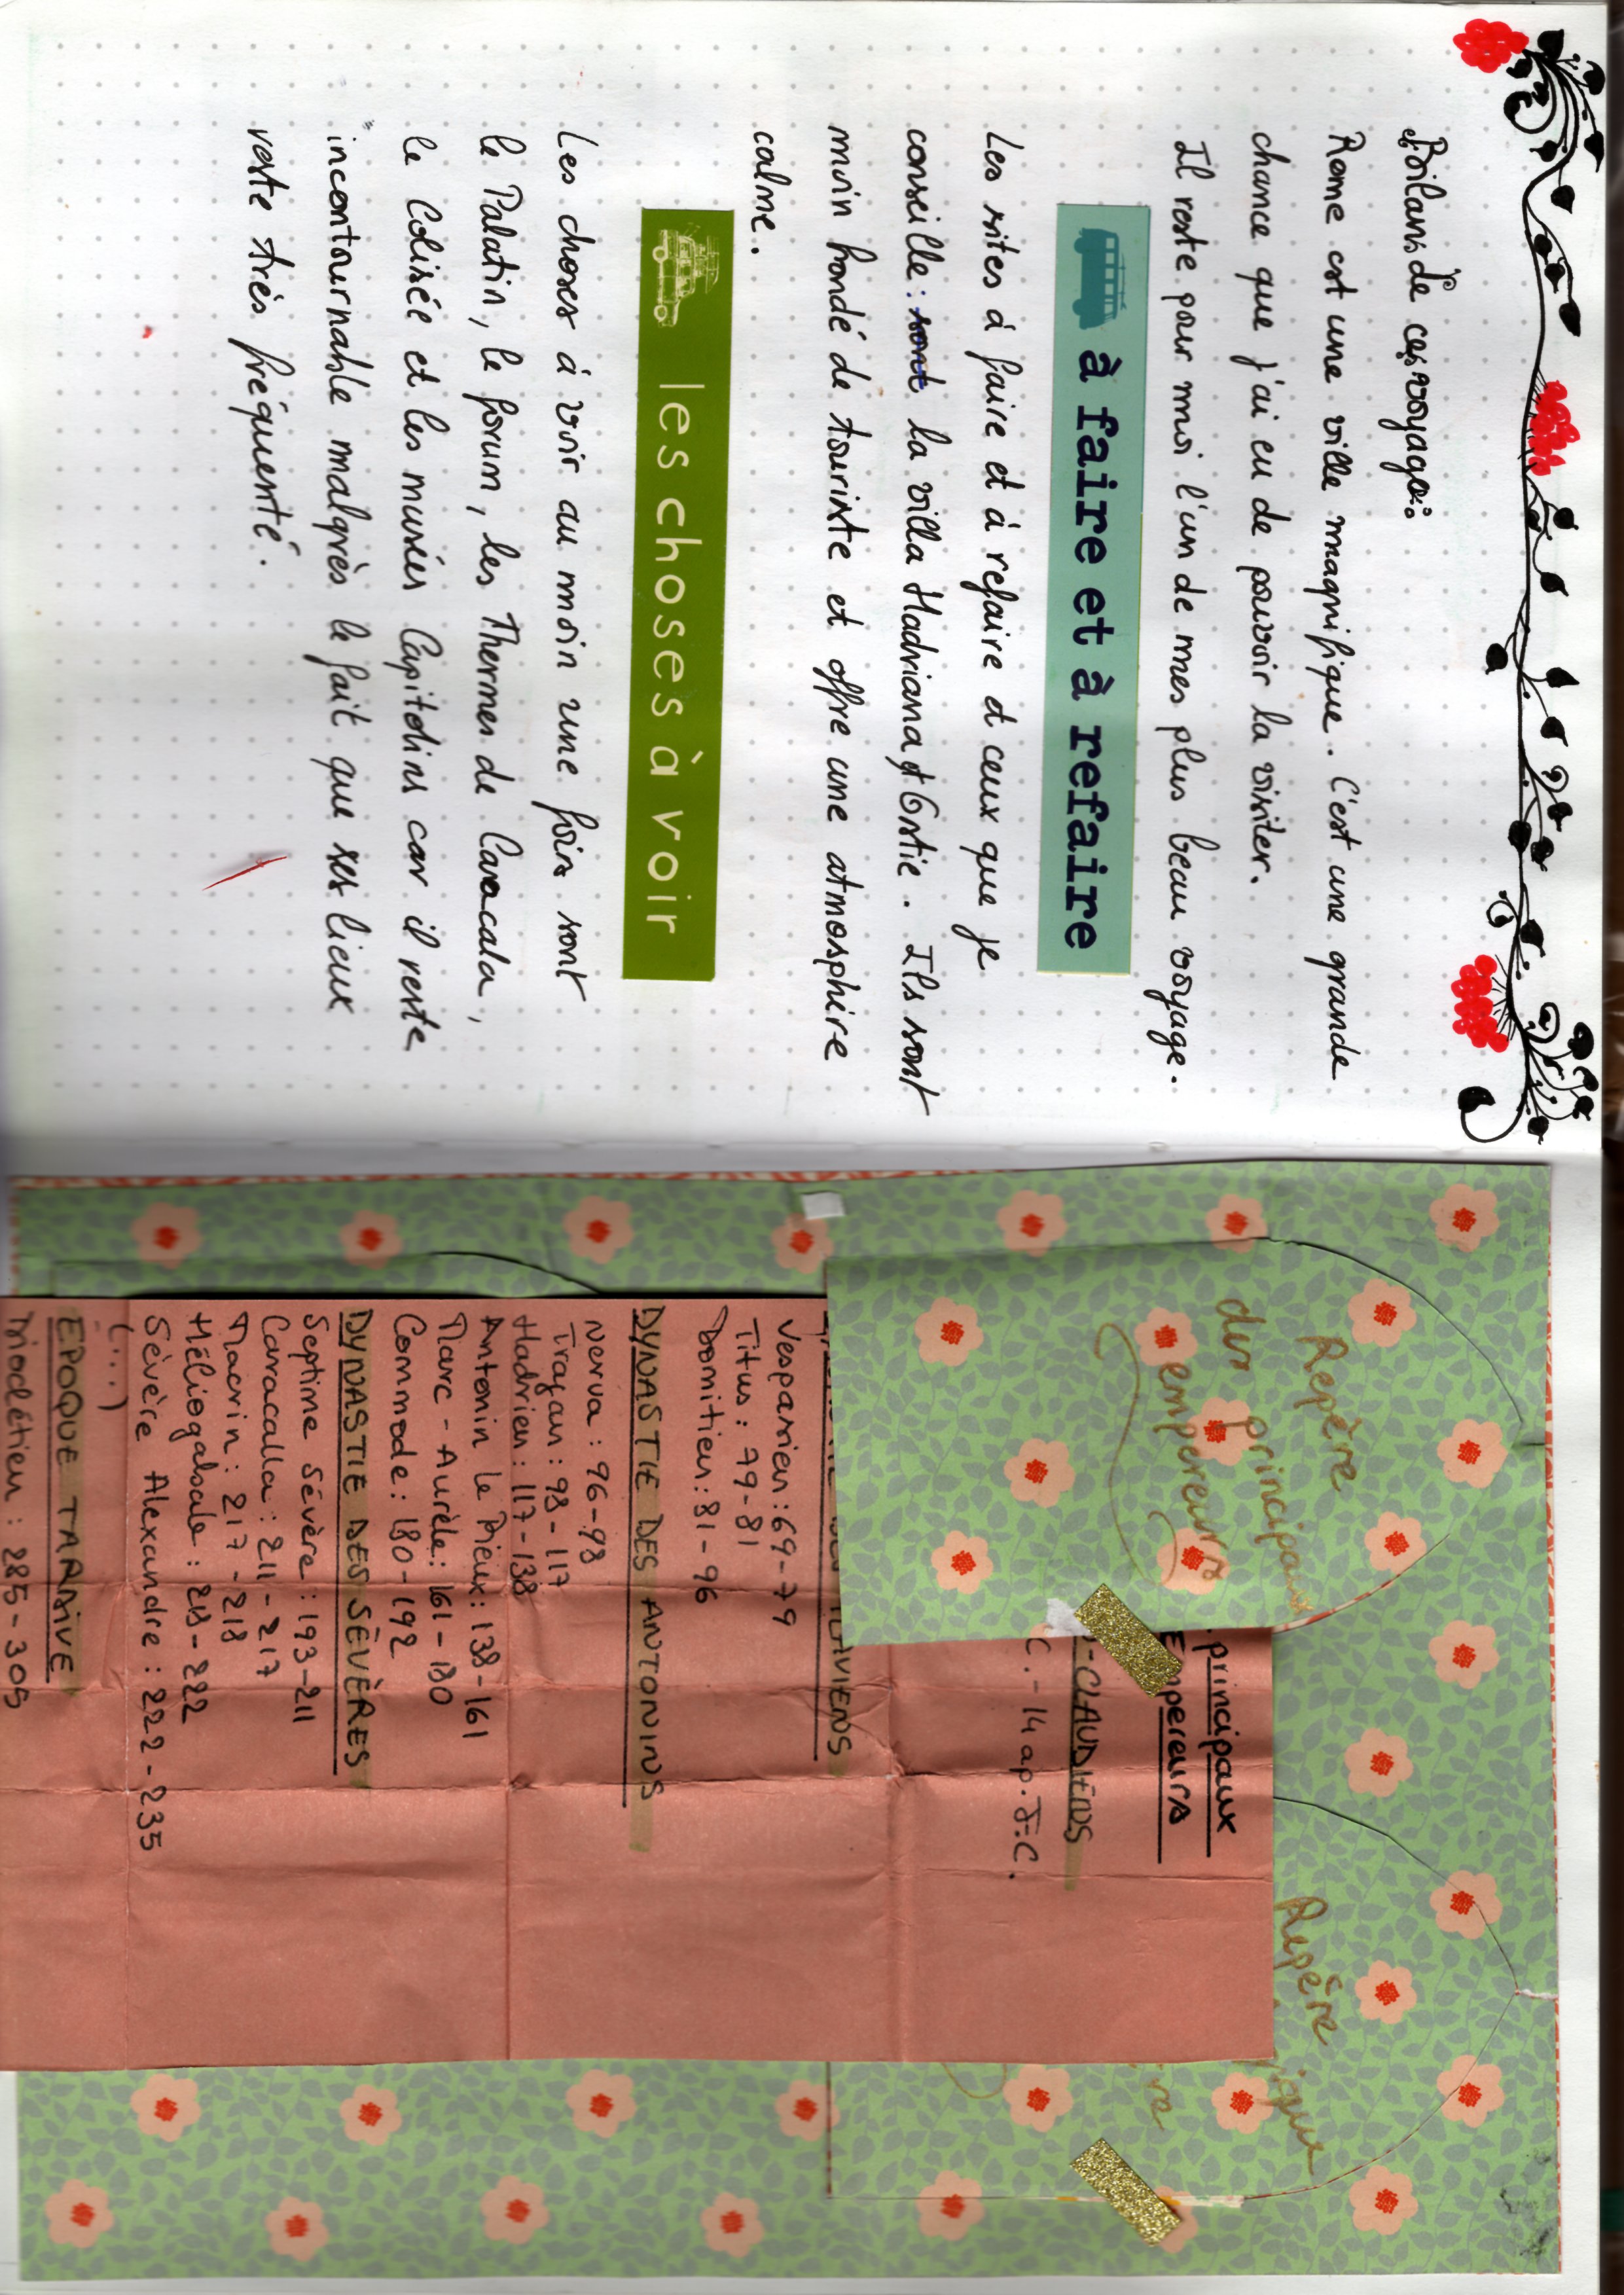 Bilans de ces voyage:
Rome est une ville magnifique. C'est une grande
chance que j'ai eu de pouvoir la visiter.
Il reste pour moi l'un de mes plus beau voyage.
à faire et à refaire
Les sites à faire et à refaire et ceux que je
conseille: sont la villa Hadriana et Ostie. Ils sont
moin bondé de touriste et offre une atmosphère
calme.
les choses à voir
Les choses à voir au moin une fois sont
le Palatin, le forum, les Thermes de Caracala,
le Colisée et les musées Capitolins car il reste
incontournable malgrès le fait que ses lieux
reste très fréquenté.
Repère
des principaux
empereurs
Repère
principaux
Empereurs
-CLAUDIENS
C. - 14 ap. J.C.
DES FLAVIENS
Vespasien : 69-79
Titus : 79-81
Domitien : 81-96
DYNASTIE DES ANTONINS
Nerva : 96-98
Trajan : 98-117
Hadrien : 117-138
Antonin le Pieux : 138-161
Marc-Aurèle : 161-180
Commode : 180-192
DYNASTIE DES SÉVÈRES
Septime Sévère : 193-211
Caracalla : 211-217
Macrin : 217-218
Héliogabale : 218-222
Sévère Alexandre : 222-235
(...)
ÉPOQUE TARDIVE
Dioclétien : 285-305